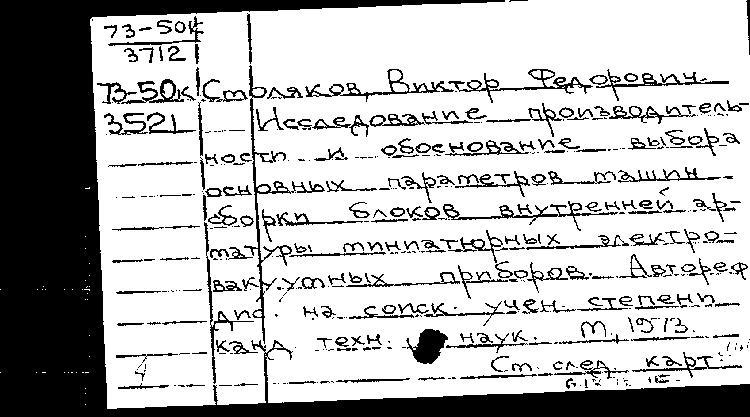 73-50к
3712
73-50к Столяков, Виктор Федорович.
3521 Исследование производитель-
ности и обоснование выбора
основных параметров машин
сборки блоков внутренней ар-
матуры миниатюрных электро-
вакуумных приборов. Автореф
дис. на соиск. учен. степени
канд техн. наук. М, 1973.
Ст. след. карт.
4